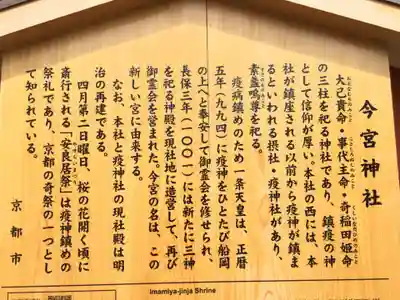 今宮神社
大己貴命・事代主命・奇稲田姫命
の三柱を祀る神社であり、鎮疫の神
として信仰が厚い。本社の西には、本
社が鎮座される以前から疫神が鎮ま
るといわれる摂社・疫神社があり、
素盞鳴尊を祀る。
疫病鎮めのため一条天皇は、正暦
五年(九九四)に疫神をひとたび船岡
の上へと奉安して御霊会を修せられ、
長保三年(一〇〇一)には新たに三神
を祀る神殿を現社地に造営して、再び
御霊会を営まれた。今宮の名は、この
新しい宮に由来する。
なお、本社と疫神社の現社殿は明
治の再建である。
四月第二日曜日、桜の花開く頃に
斎行される「安良居祭」は疫神鎮めの
祭礼であり、京都の奇祭の一つとし
て知られている。
京都市
Imamiya-jinja Shrine